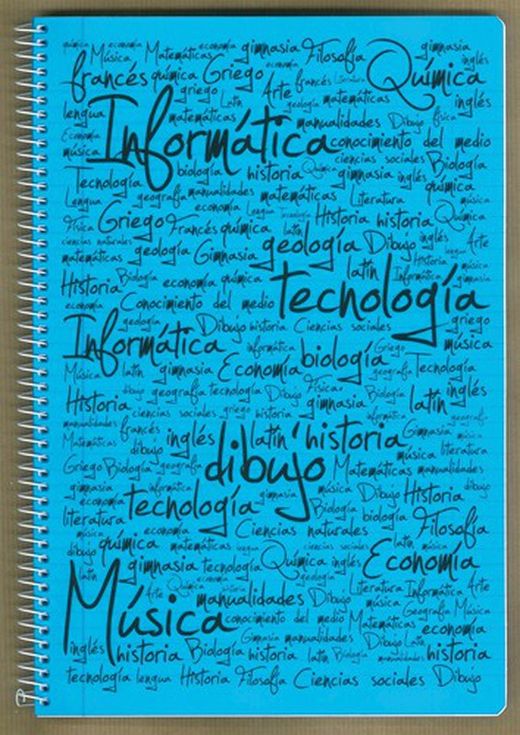 química economía Música Matemáticas economía gimnasia Filosofía gimnasia inglés
francés química Griego economía francés Literatura Química
griego Latín Arte geología matemáticas inglés
lengua matemáticas manualidades Dibujo física
Economía Informática conocimiento del medio
música biología historia ciencias sociales Biología
Tecnología Química gimnasia inglés química
Lengua geografía manualidades matemáticas Literatura música
Física Griego Francés química economía Lengua Tecnología Historia historia Química
ciencias naturales latín geología Dibujo inglés Arte
matemáticas geología Gimnasia lengua
Historia Biología economía química latín Historia música Informática gimnasia
economía Conocimiento del medio tecnología
geología Dibujo historia Ciencias sociales griego
Informática informática biología Griego música
Música latín gimnasia Economía geografía Tecnología
dibujo geografía tecnología Dibujo Física Biología latín inglés
Historia ciencias sociales griego historia gimnasia informática geografía
manualidades francés inglés latín historia Gimnasia música
Matemáticas dibujo música literatura
Griego Biología geografía dibujo Matemáticas manualidades
gimnasia informática música Dibujo Historia dibujo
economía tecnología gimnasia
literatura Biología biología Filosofía
música economía Ciencias naturales
dibujo química matemáticas lengua ciencias sociales latín música
latín gimnasia tecnología Química inglés Economía
economía geología
Música Arte Química historia Literatura Informática Arte
manualidades Dibujo música Geografía Música
conocimiento del medio Matemáticas economía
Gimnasia manualidades Dibujo Latín
inglés historia Biología historia latín Biología manualidades historia
tecnología lengua Historia Filosofía Ciencias sociales Dibujo